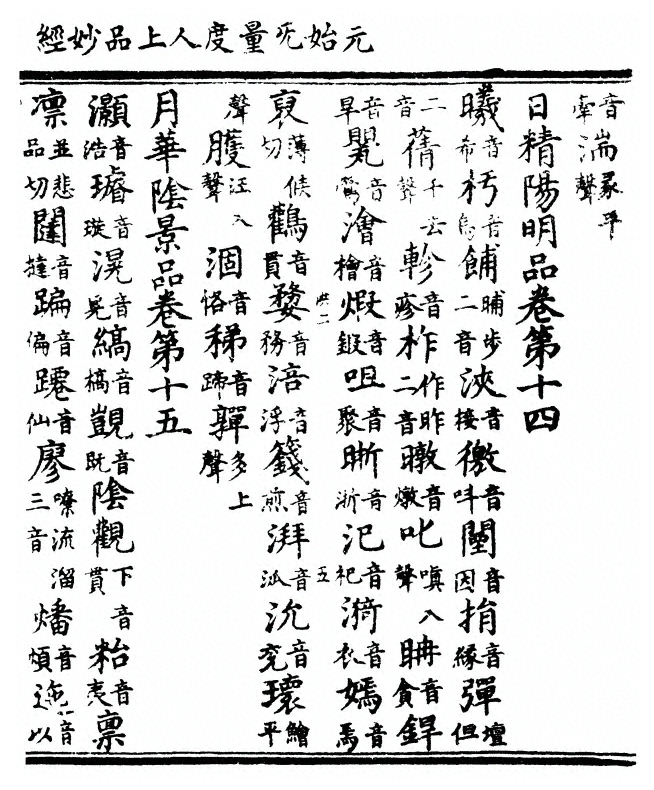 元始旡量度人上品妙經
音牽湍彖平聲
日精陽明品卷第十四
曦音希朽音烏餔晡步二音浹音接徼音呌闉音因捐音緣彈壇但
二音蒨千去聲軫音疹柞作昨二音暾音燉叱嗔入聲耼音貪銲
音旱䦧音鬩澮音檜煆音鍜咀音聚晰音淅汜音祀漪音衣嫣音焉
裒薄候切鸛音貫婺音務涪音浮籛音煎湃音派沇音兖環鱠平
聲臒汪入聲涸音恪稊音蹄嚲多上聲
月華陰景品卷第十五
灝音浩璿音璇滉音晃縞音槁覬音旣陰觀下音貫粭音夷稟
凛並悲品切闥音撻蹁音偏躚音仙廖嘹流溜三音燔音煩迤音以